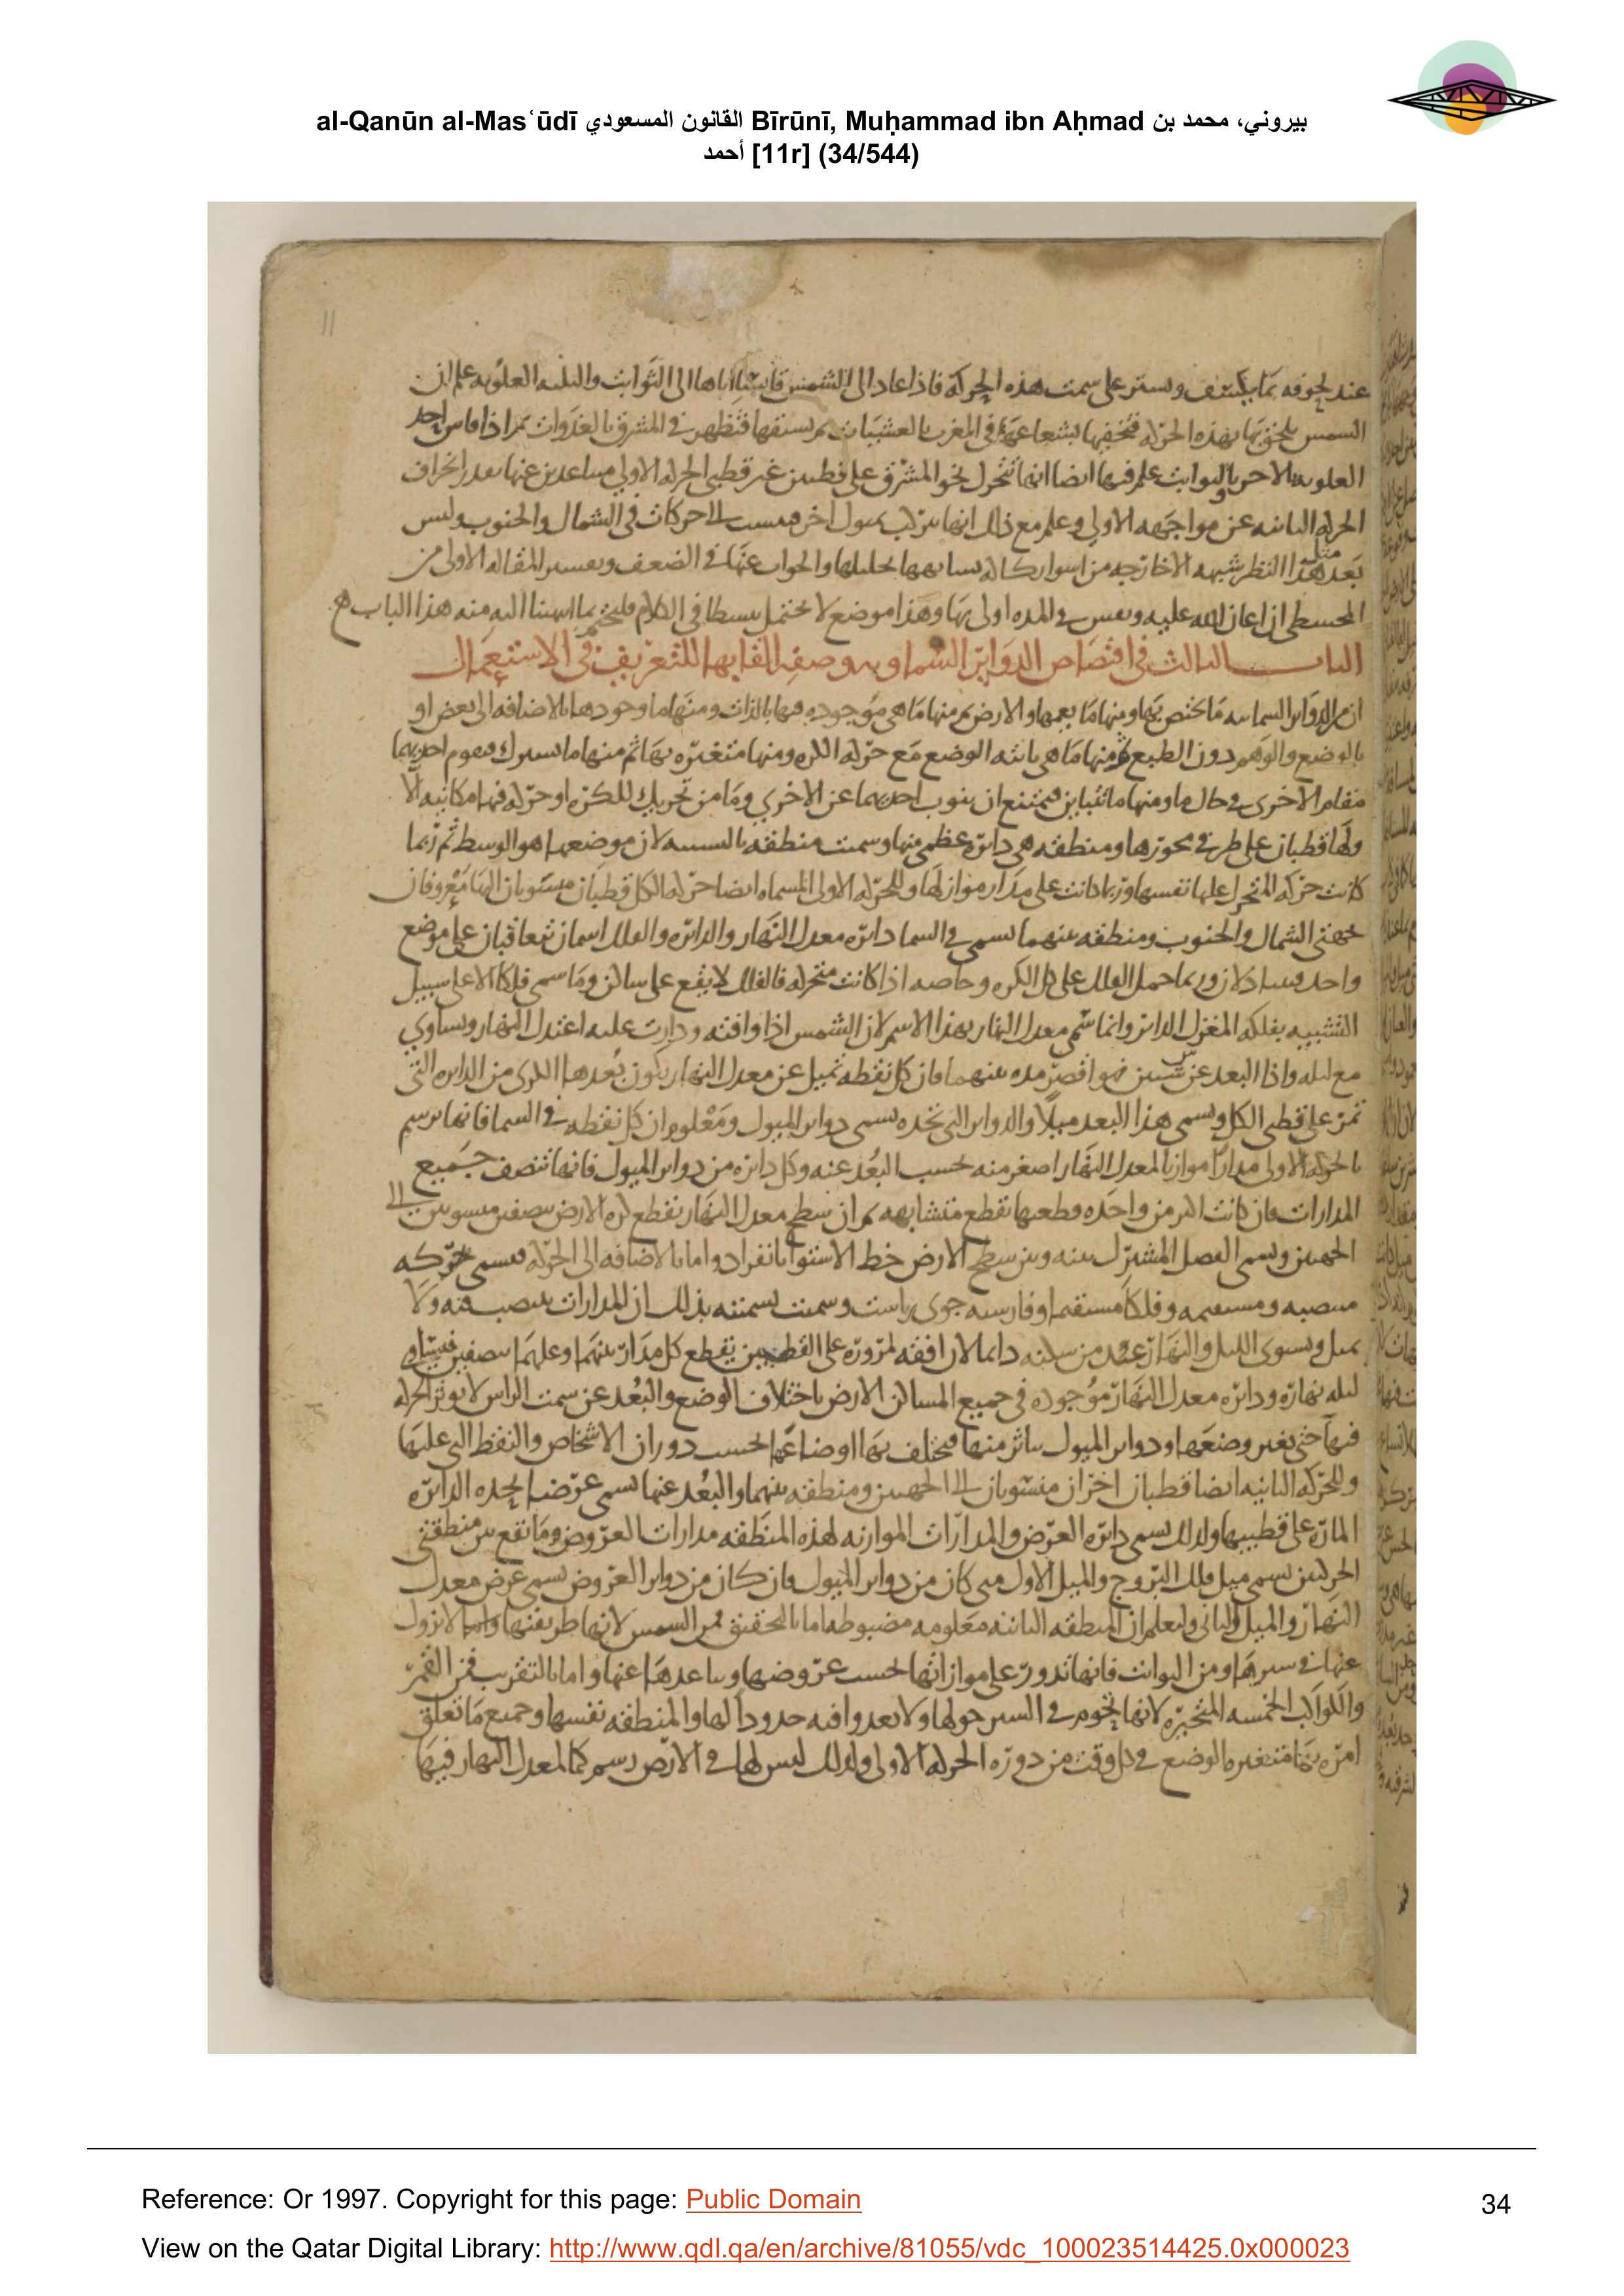 al-Qanūn al-Masʿūdī القانون المسعودي Bīrūnī, Muḥammad ibn Aḥmad بيروني، محمد بن
أحمد [11r] (34/544)
11
عند لحوقه بما يكسف ويستر على سمت هذه الحركة فاذا عاد الى الشمس قايسا اياها الى الثوابت والثلثه العلويه علم ان
الشمس يلحق بها بهذه الحركه فتخفيها بشعاعها في المغرب بالعشيات ثم تسبقها فتظهر في المشرق بالغدوات ثم اذا قاس احد
العلويه بالاخر وبالثوابت علم فيها ايضا انها تتحرك نحو المشرق على قطبين غير قطبي الحركه الاولى متباعدين عنها بعد انحراف
الحركه الثانيه عن مواجهه الاولى وعلم مع ذلك انها تتركب بميول اخر فيست الى حركات في الشمال والجنوب وليس
بعد مثل هذا النظر شبهه الا خارجه من
المجسطي ان اعان الله عليه ونفس في المده اولى بها وهذا موضع لا يحتمل بسطا في الكلام فليختم بما انتهينا اليه منه هذا الباب
الباب الثالث في اقتصاص الدوائر السماويه وصفه القابها للتعريف في الاستعمال
ان من الدوائر السمائيه ما يختص بها ومنها ما يعمها والارض ثم منها ما هي موجوده فيها بالذات ومنها ما وجودها بالاضافه الى بعض او
بالوضع والوهم دون الطبع ثم منها ما هي ثابته الوضع مع حركه الكره ومنها متغيره بها ثم منها ما يشترك فيقوم احديهما
مقام الاخرى في حال ما ومنها ما تتباين فيمتنع ان ينوب احديهما عن الاخرى وما من تحريك للكره او حركه فيها مكانيه الا
ولها قطبان على طرفي محورها ومنطقه هي دائره عظمى منها وسميت منطقه بالتشبيه لان موضعها هو الوسط ثم ربما
كانت حركه المتحرك عليها نفسها وربما كانت على مدار مواز لها وللحركه الاولى المسماه ايضا حركه الكل قطبان منسوبان اليها معروفان
بجهتي الشمال والجنوب ومنطقه بينهما تسمى في السما دائره معدل النهار والدائره والفلك اسمان يتعاقبان على موضع
واحد فيتبادلان وربما حمل الفلك على كل الكره وخاصه اذا كانت متحركه فالفلك لا يقع على ساكن وما سمي فلكا الا على سبيل
التشبيه بفلكه المغزل الدائر وانما سمي معدل النهار بهذا الاسم لان الشمس اذا وافته ودارت عليه اعتدل النهار وتساوى
مع ليله واذا البعد عن شيين هو اقصر مده بينهما فان كل نقطه تميل عن معدل النهار يكون بعدها الذي من الدائره التي
تمر على قطبي الكل ويسمى هذا البعد ميلا والدوائر التي تحده تسمى دوائر الميول ومعلوم ان كل نقطه في السما فانها ترسم
بالحركه الاولى مدارا موازيا لمعدل النهار اصغر منه بحسب البعد عنه وكل دائره من دوائر الميول فانها تنصف جميع
المدارات فان كانت اكثر من واحده وقطعها تقطع متشابهه ثم ان سطح معدل النهار تقطع كره الارض بنصفين منسوبين الى
الجهتين ويسمى الفصل المشترك بينه وبين سطح الارض خط الاستوا بانفراد واما بالاضافه الى الحركه فيسمى حركه
منتصبه ومستقيمه وفلكا مستقيما وفارسيه جوى راست وسميت تسميته بذلك ان المدارات تنتصب فيه ولا
تميل ويستوى الليل والنهار عند من سكنه دايما لان افقه لمروره على القطبين يقطع كل مدار بينهما وعليهما بنصفين فيتساوى
ليله نهاره ودائره معدل النهار موجوده في جميع المساكن الارض باختلاف الوضع والبعد عن سمت الراس لا يوثر الحركه
فيها حتى يغير وضعها ودوائر الميول يتاثر منها فيختلف بها اوضاعها بحسب دوران الاشخاص والنقط التي عليها
وللحركه الثانيه ايضا قطبان اخران منسوبان الى الجهتين ومنطقه بينهما والبعد عنها يسمى عرضا يحده الدائره
الماره على قطبيها ولذلك تسمى دائره العرض والمدارات الموازيه لهذه المنطقه مدارات العروض وما تقع بين منطقتي
الحركتين تسمى ميل فلك البروج والميل الاول متى كان من دوائر الميول فان كان من دوائر العروض تسمى عرض معدل
النهار والميل الثاني وليعلم ان المنطقه الثانيه معلومه مضبوطه اما بالتحقيق فمن الشمس لانها طريقتها وانها لا تزول
عنها في سيرها ومن الثوابت فانها تدور على موازاتها بحسب عروضها وتباعدها عنها واما بالتقريب فمن القمر
والكواكب الخمسه المتحيره لانها تحوم في السير حولها ولا تعدو افيه حدودا لها والمنطقه نفسها وجميع ما تعلق
امره بها متغيره الوضع في كل وقت من دوره الحركه الاولى ولذلك ليس لها في الارض رسم كما لمعدل النهار فيها
Reference: Or 1997. Copyright for this page: Public Domain
34
View on the Qatar Digital Library: http://www.qdl.qa/en/archive/81055/vdc_100023514425.0x000023